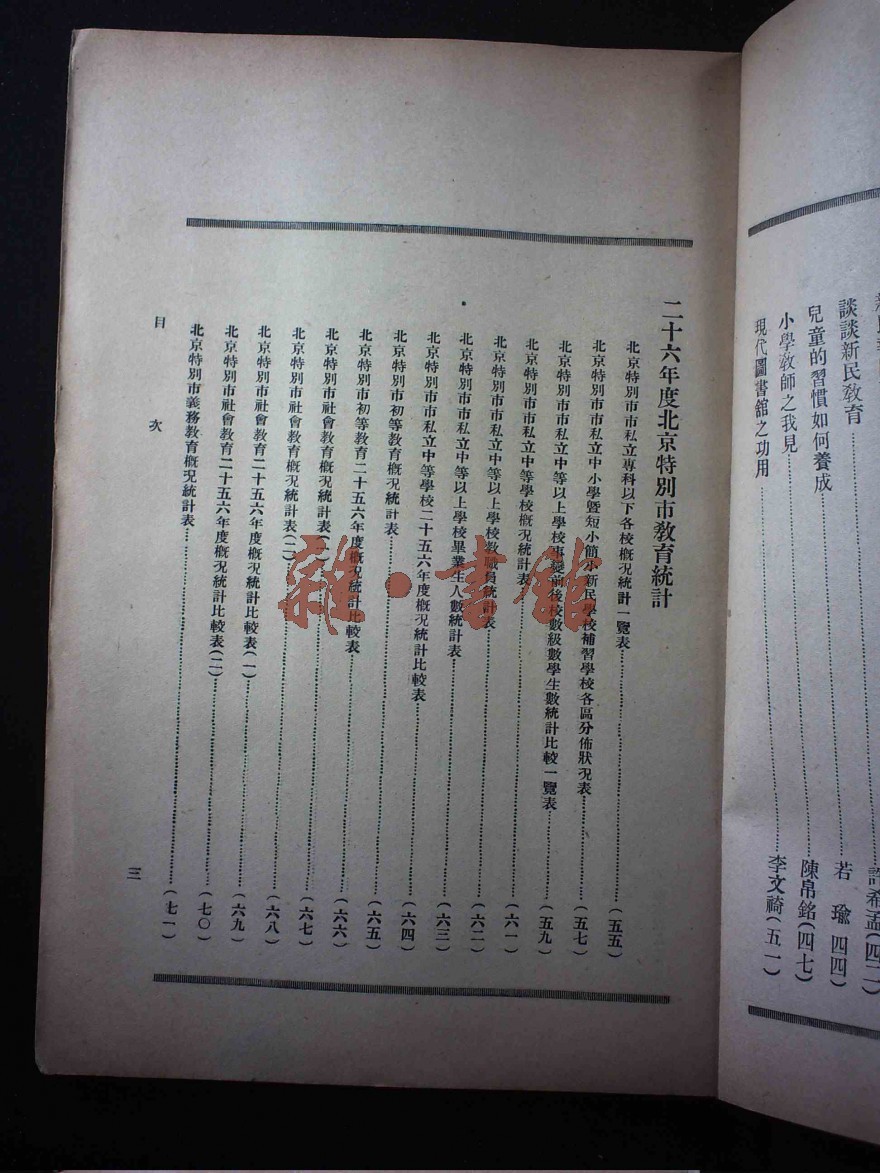 談談新民教育……若瑜 四四)
兒童的習慣如何養成
小學教師之我見……陳帛銘(四七)
現代圖書館之功用……李文䄎(五一)
二十六年度北京特別市教育統計
北京特別市市私立專科以下各校概況統計一覽表……(五五)
北京特別市市私立中小學暨短小簡小新民學校補習學校各區分佈狀況表……(五七)
北京特別市市私立中等以上學校事變前後校數級數學生數統計比較一覽表……(五九)
北京特別市市私立中等學校概況統計表……(六一)
北京特別市市私立中等以上學校教職員統計表……(六二)
北京特別市市私立中等以上學校畢業生人數統計表……(六三)
北京特別市市私立中等學校二十五六年度概況統計比較表……(六四)
北京特別市初等教育概況統計表……(六五)
北京特別市初等教育二十五六年度概況統計比較表……(六六)
北京特別市社會教育概況統計表(一)……(六七)
北京特別市社會教育概況統計表(二)……(六八)
北京特別市社會教育二十五六年度概況統計比較表(一)……(六九)
北京特別市社會教育二十五六年度概況統計比較表(二)……(七〇)
北京特別市義務教育概況統計表……(七一)
目次
三
雜·書館